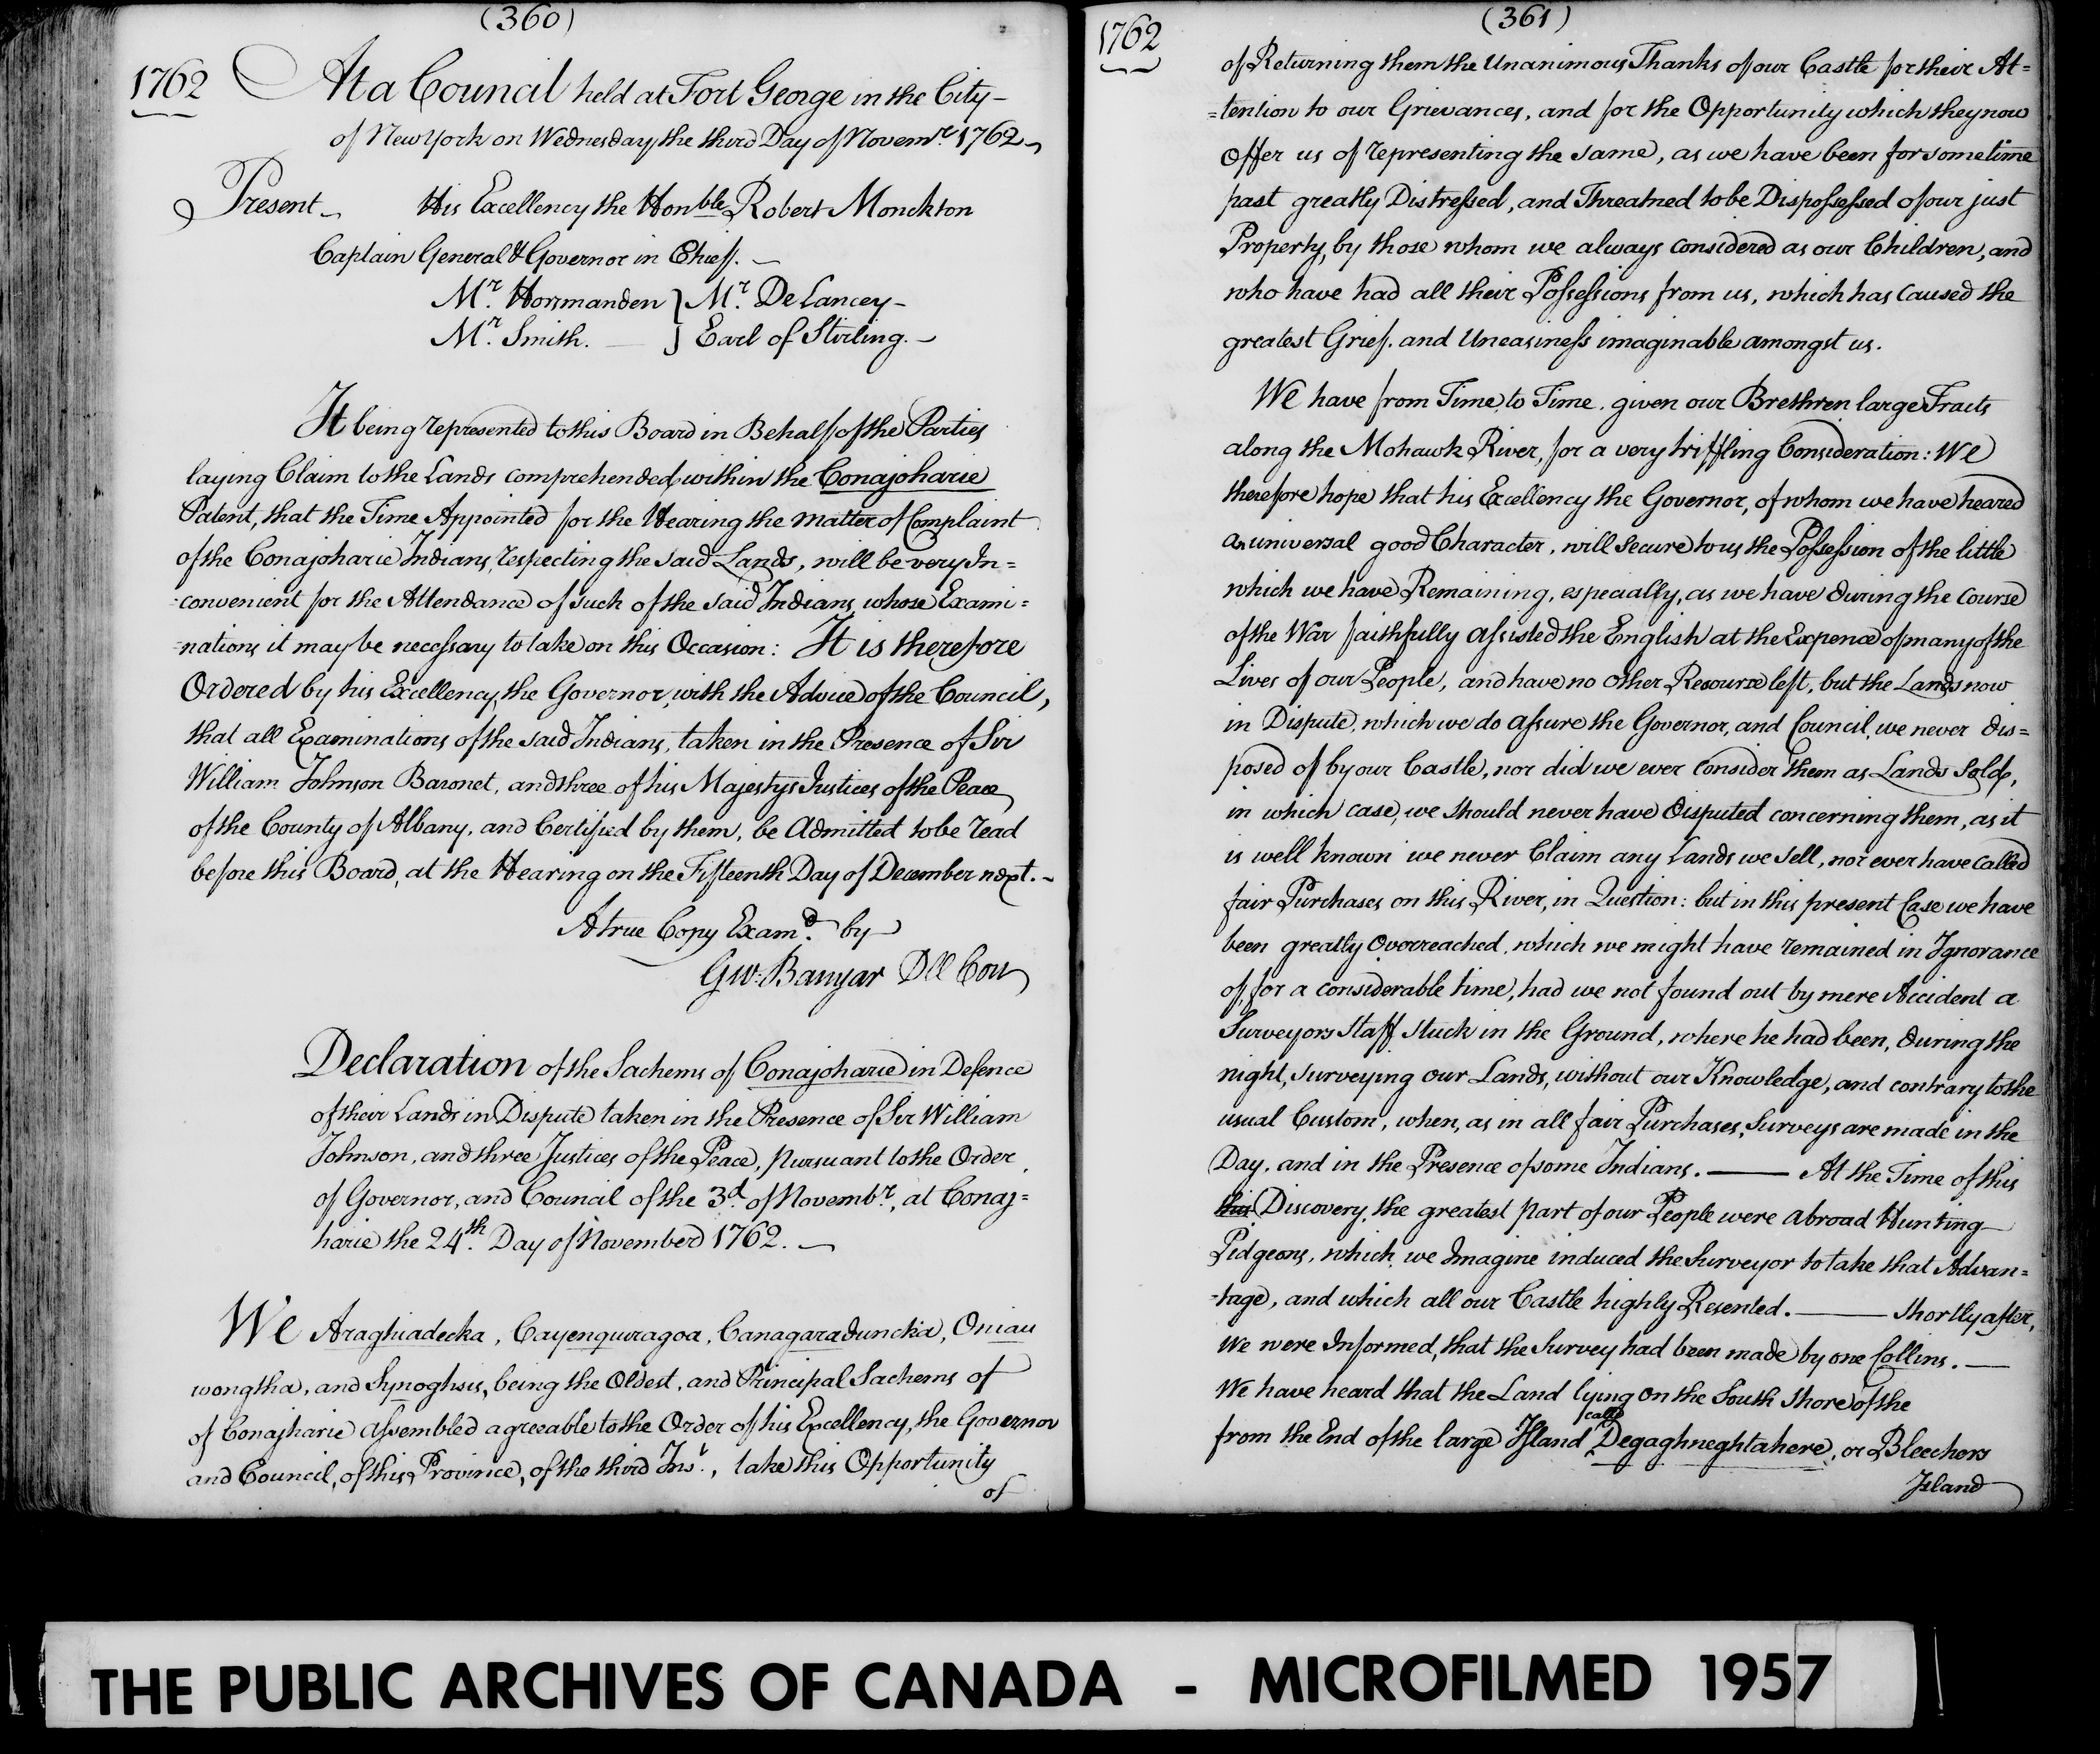 (360)
1762 At a Council held at Fort George in the City
of New York on Wednesday the third Day of Novemr. 1762
Present His Excellency the Honble Robert Monckton
Captain General & Governor in Chief.
Mr. Horsmanden } Mr. De Lancey
Mr. Smith. } Earl of Stirling.
It being represented to this Board in Behalf of the Parties
laying Claim to the Lands comprehended within the Conajoharie
Patent, that the Time Appointed for the Hearing the matter of Complaint
of the Conajoharie Indians, respecting the said Lands, will be very In=
=convenient for the Attendance of such of the said Indians, whose Exami=
=nations it may be necessary to take on this Occasion: It is therefore
Ordered by his Excellency, the Governor, with the Advice of the Council,
that all Examinations of the said Indians, taken in the Presence of Sir
William Johnson Baronet, and three of his Majestys Justices of the Peace
of the County of Albany, and Certified by them, be Admitted to be read
before this Board, at the Hearing on the Fifteenth Day of December next.
A true Copy Examd. by
Gw: Banyar Dll Con
Declaration of the Sachems of Conajoharie in Defence
of their Lands in Dispute taken in the Presence of Sir William
Johnson, and three Justices of the Peace, pursuant to the Order
of Governor, and Council of the 3d. of Novembr., at Conaj=
harie the 24th. Day of November 1762.
We Araghiadecka, Cayenquiragoa, Canagaraduncka, Oniau
wongtha, and Synoghsis, being the Oldest, and Principal Sachems of
of Conajharie assembled agreeable to the Order of his Excellency, the Governor
and Council, of this Province, of the third Inst., take this Opportunity
of
1762 (361)
of Returning them the Unanimous Thanks of our Castle for their At=
=tention to our Grievances, and for the Opportunity which they now
Offer us of representing the same, as we have been for some time
past greatly Distressed, and Threatned to be Dispossessed of our just
Property, by those whom we always considered as our Children, and
who have had all their Possessions from us, which has caused the
greatest Grief. and Uneasiness imaginable amongst us.
We have from Time to Time, given our Brethren large Tracts
along the Mohawk River, for a very triffling Consideration: We
therefore hope that his Excellency the Governor, of whom we have heared
an universal good Character, will secure to us the Possession of the little
which we have Remaining, especially, as we have during the course
of the War faithfully assisted the English at the Expence of many of the
Lives of our People, and have no other Recource left, but the Lands now
in Dispute, which we do assure the Governor, and Council, we never dis=
posed of by our Castle, nor did we ever consider them as Lands Sold,
in which case, we should never have disputed concerning them, as it
is well known we never Claim any Lands we sell, nor ever have called
fair Purchases on this River, in Question: but in this present Case we have
been greatly Overreached, which we might have remained in Ignorance
of, for a considerable time, had we not found out by mere Accident a
Surveyors Staff stuck in the Ground, where he had been, during the
night, surveying our Lands, without our Knowledge, and contrary to the
usual Custom, when, as in all fair Purchases, Surveys are made in the
Day, and in the Presence of some Indians. At the Time of this
this Discovery, the greatest part of our People were abroad Hunting
Pidgeons, which, we Imagine induced the Surveyor to take that Advan=
=tage, and which all our Castle highly Resented. Shortly after,
We were Informed, that the Survey had been made by one Collins.
We have heard that the Land lying on the South Shore of the
from the End of the large Island calld Degaghneghtahere, or Bleechers
Island
THE PUBLIC ARCHIVES OF CANADA - MICROFILMED 1957